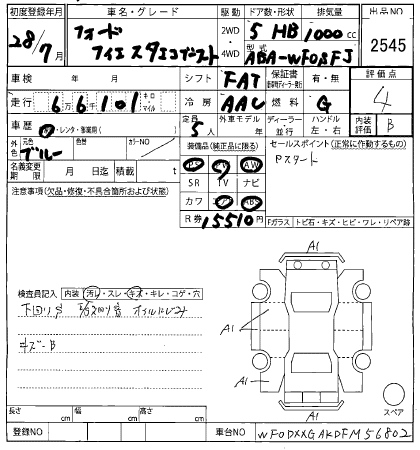 初度登録年月 車名・グレード 駆動 ドア数・形状 排気量 出品NO
28/7月 フォード フィエスタエコブースト 2WD 4WD 5 HB 1000cc 2545
型式 ABA-WF0SFJ
車検 年 月 シフト FAT 保証書 有・無 評価点
走行 6 6万 1 0 1 キロ・マイル 冷房 AAC 燃料 G 4
車歴 自・レンタ・事業用( ) 定員 5人 外車モデル 年 ディーラー 並行 ハンドル 左・右 内装評価 B
外色 元色 ブルー 色替 カラーNO 装備品(純正品に限る) セールスポイント(正常に作動するもの)
Pスタート
PS PW AW
名義変更期限 月 日迄 積載 t SR TV ナビ
注意事項(欠品・修復・不具合箇所および状態) カワ エア AB
R券 15510円 Fガラス トビ石・キズ・ヒビ・ワレ・リペア跡
A1
検査員記入 内装 汚れ・スレ・キズ・キレ・コゲ・穴
キズ-B
A1
A1
A1
スペア
長さ cm 幅 cm 高さ cm
登録NO 車台NO WF0DXXGAKDFM56802